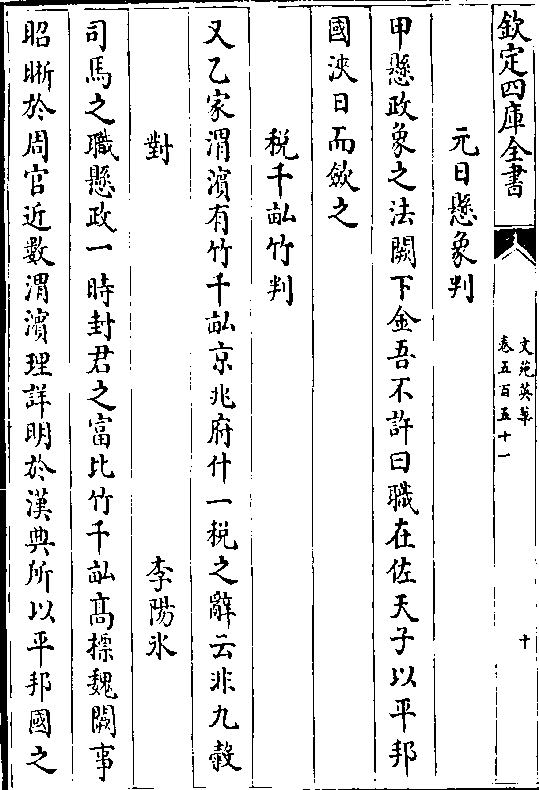 欽定四庫全書
文苑英華
卷五百五十一
十
元日懸象判
甲懸政象之法闕下金吾不許曰職在佐天子以平邦
國浹日而斂之
稅千畝竹判
又乙家渭濱有竹千畝京兆府什一稅之辭云非九穀
對
李陽氷
司馬之職懸政一時封君之富比竹千畝髙標魏闕事
昭晰於周官近數渭濱理詳明於漢典所以平邦國之